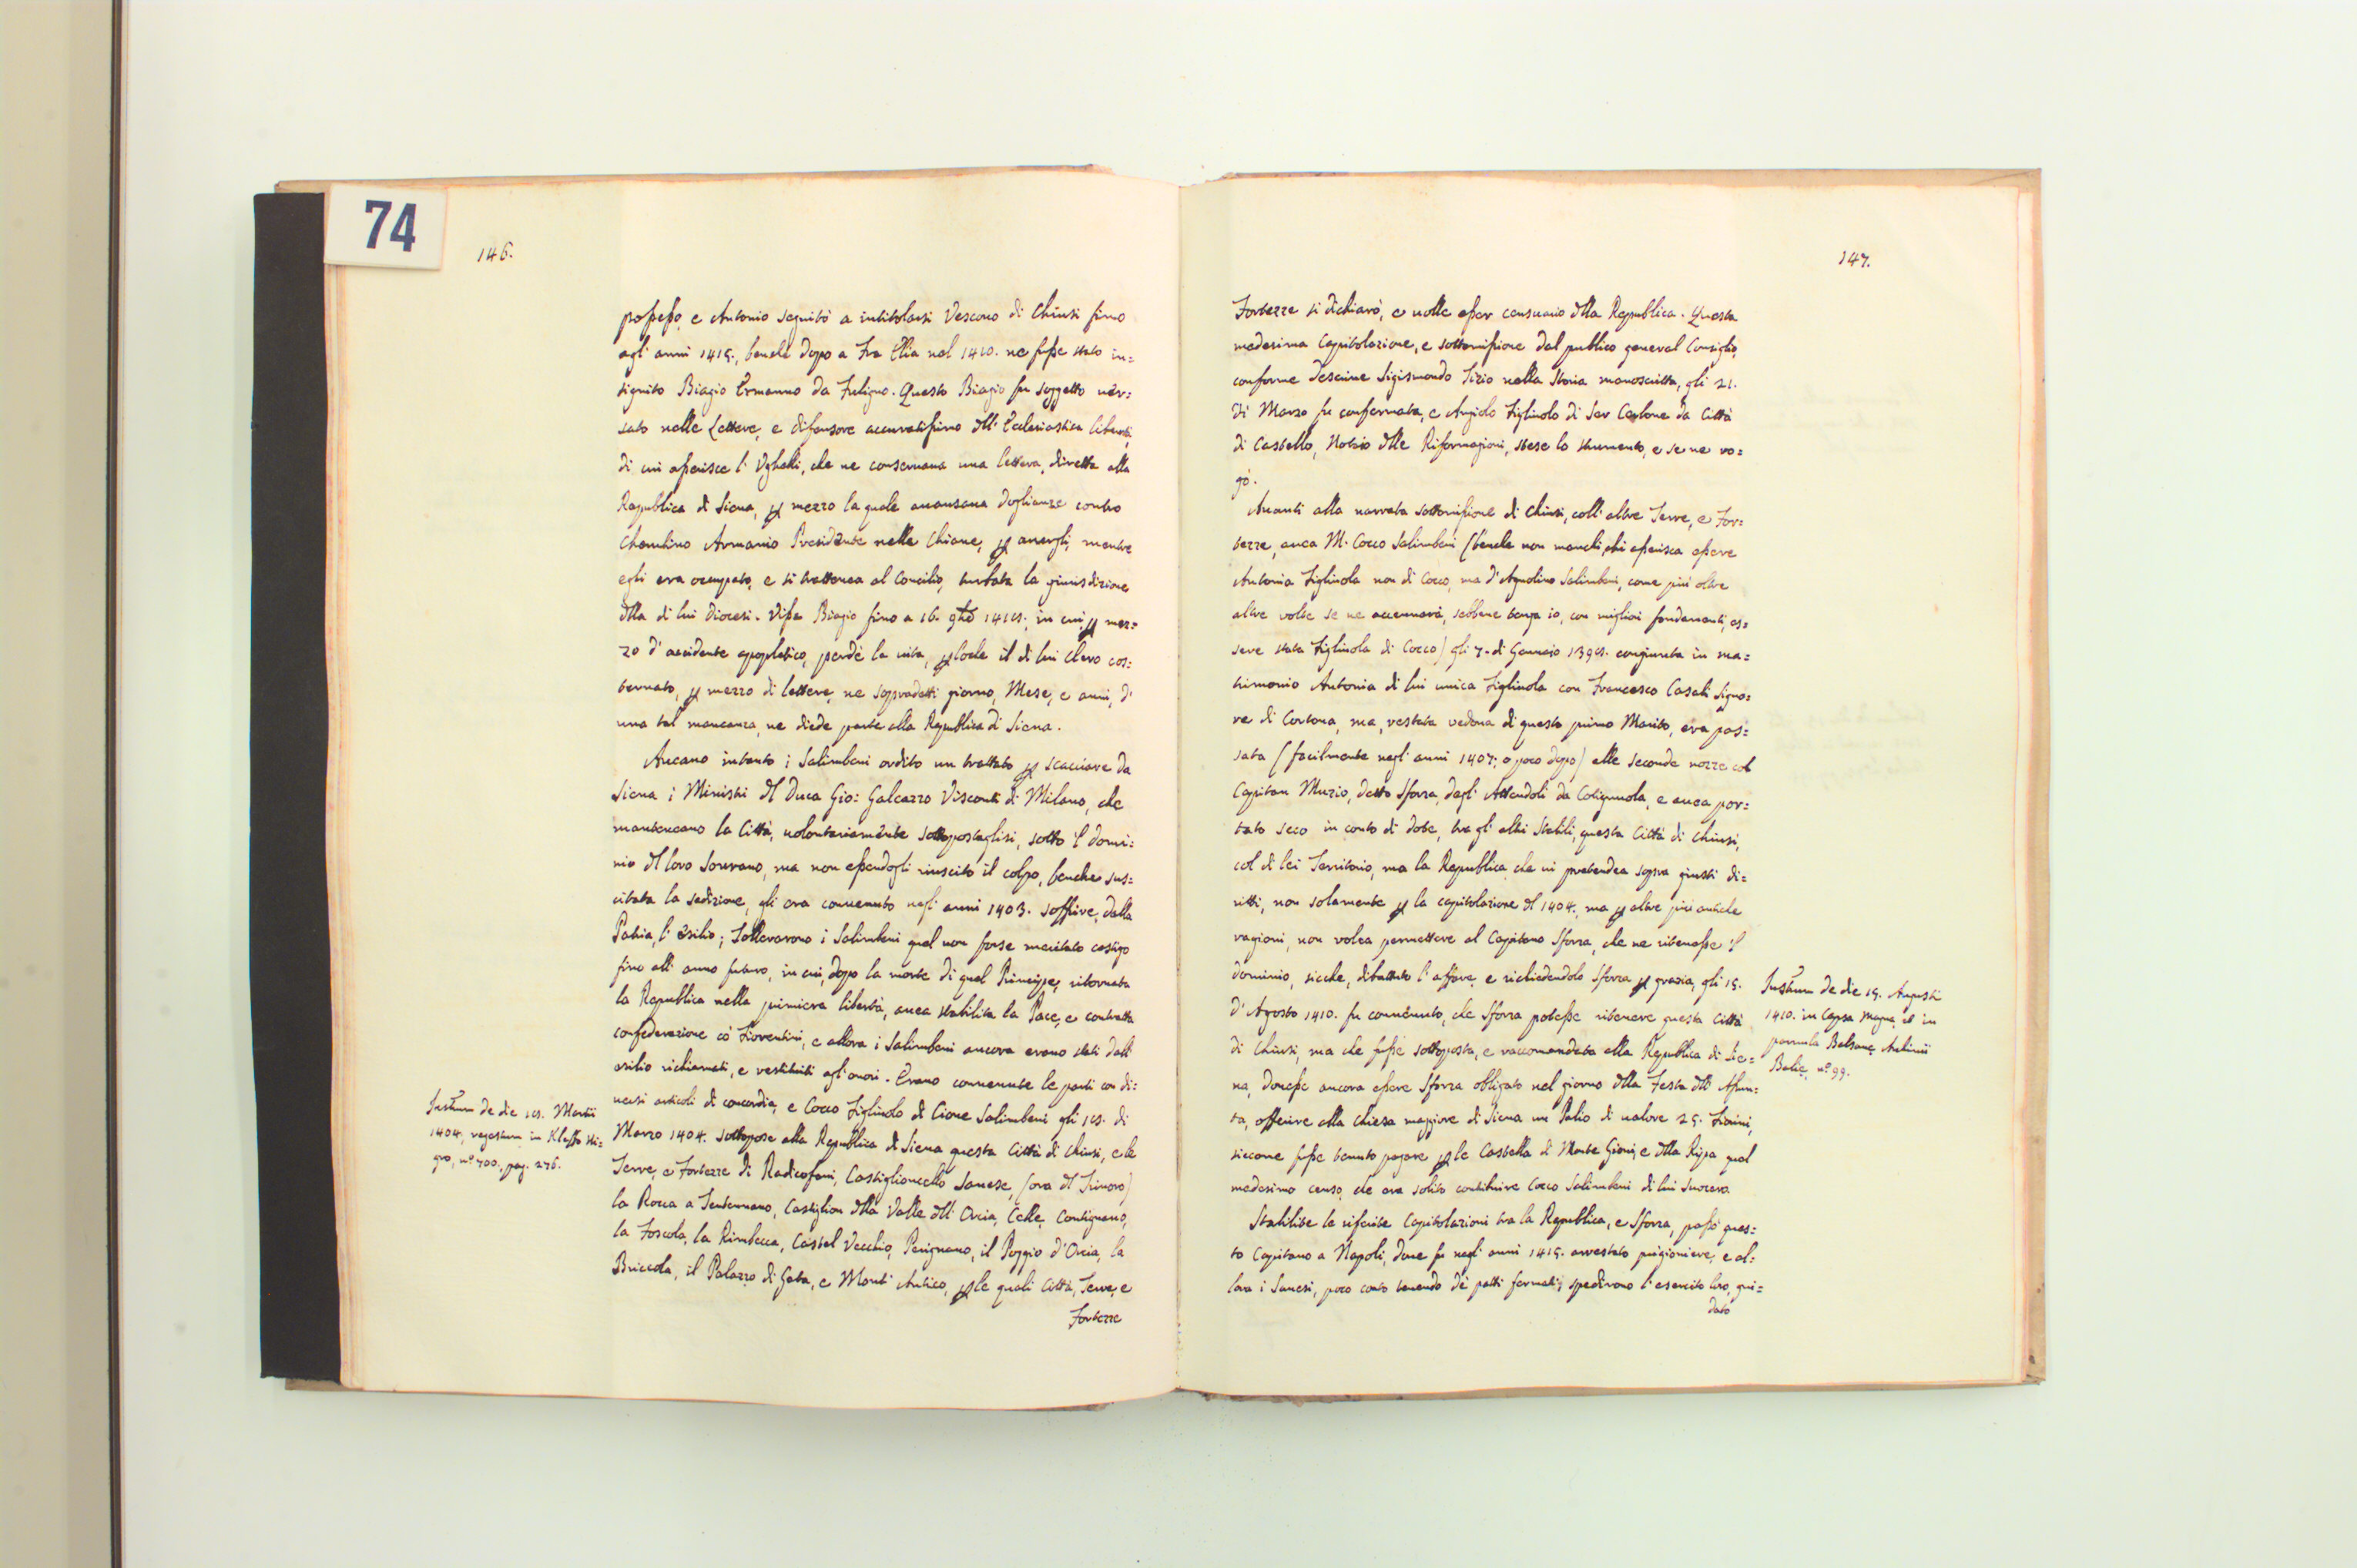 74
146.
possesso, e Antonio seguitò a intitolarsi Vescovo di Chiusi fino
agl' anni 1415., benchè dopo a Fra Elia nel 1410. ne fusse stato in=
signito Biagio Ermanno da Fuligno. Questo Biagio fu soggetto ver=
sato nelle Lettere, e difensore accuratissimo dll' Ecclesiastica libertà,
di cui asserisce l' Vghelli, che ne conservava una lettera, diretta alla
Republica di Siena, p mezzo la quale avansava doglianze contro
Presidente nelle Chiane, p avergli, mentre
egli era occupato, e si trattenea al Concilio, turbata la giurisdizione
dlla di lui Diocesi. Visse Biagio fino a 16. in cui p mez=
zo d' accidente apopletico, perdè la vita, p loche il di lui Clero cos=
ternato, p mezzo di lettere, ne sopradetti giorno, Mese, e anni, d'
una tal mancanza, ne diede parte alla Republica di Siena.
Aveano intanto i Salimbeni ordito un trattato p scacciare da
Siena i Ministri dl Duca Gio: Galeazzo Visconti di Milano, che
manteneano la Città, volontariamente sottopostaglisi, sotto 'l domi=
nio dl loro Sovrano, ma non essendogli riuscito il colpo, benche sus=
citata la sedizione, gli era convenuto negl' anni 1403. soffrire, dalla
Patria, l' esilio; Tollerarono i Salimbeni quel non forse meritato castigo
fino all' anno futuro, in cui, dopo la morte di quel Principe, ritornata
la Republica nella primiera libertà, avea stabilita la Pace, e contratta
confederazione co' Fiorentini, e allora i Salimbeni ancora erano stati dall'
esilio richiamati, e restituiti agl' onori. Erano convenute le parti con di=
versi articoli di concordia, e Cocco Figliuolo di Cione Salimbeni gli di
Marzo 1404. sottopose alla Republica di Siena questa Città di Chiusi, e le
Terre, e Fortezze di Radicofani, Castiglioncello Sanese, (ora dl Trinoro)
la Rocca a Tentennano, Castiglion dlla Valle dll' Orcia, Celle, Contignano,
la Foscola, la Rimbecca, Castel Vecchio, Perignano, il Poggio d' Orcia, la
Briccola, il Palazzo di Geta, e Mont' Antico, p le quali Città, Terre, e
Fortezze
de die Martii
1404, registrum in Kleffo Ni=
gro, nº. 700., pag. 276.
147.
Fortezze si dichiarò, e volle esser censuario dlla Republica. Questa
medesima Capitolazione, e sottomissione dal publico general Consiglio,
conforme descrive Sigismondo Tizio nella Storia manoscritta, gli 21.
di Marzo fu confermata, e Angiolo Figliuolo di Ser Cerbone da Città
di Castello, Notaio dlle Riformagioni, stese lo strumento, e se ne ro=
gò.
Avanti alla narrata sottomissione di Chiusi, coll' altre Terre, e For=
tezze, avea M. Cocco Salimbeni (benche non manchi, chi asserisca essere
Antonia Figliuola non di Cocco, ma d' Agnolino Salimbeni, come più oltre
altre volte se ne accennerà, sebbene tenga io, con migliori fondamenti, es=
sere stata Figliuola di Cocco) gli 7. di Gennaio congiunta in ma=
trimonio Antonia di lui unica Figliuola con Francesco Casali Signo=
re di Cortona, ma, restata vedova di questo primo Marito, era pas=
sata (facilmente negl' anni 1407; o poco dopo) alle seconde nozze col
Capitan Muzio, detto Sforza, degl' Attendoli da Cotignuola, e avea por=
tato seco in conto di dote, tra gl' altri Stabili, questa Città di Chiusi,
col di lei Territorio, ma la Republica, che vi pretendea sopra giusti di=
ritti, non solamente p la capitolazione dl 1404., ma p altre più antiche
ragioni, non volea permettere al Capitano Sforza, che ne ritenesse 'l
dominio, sicche, dibattuto l' affare, e richiedendolo Sforza p grazia, gli 15.
d' Agosto 1410. fu convenuto, che Sforza potesse ritenere questa Città
di Chiusi, ma che fusse sottoposta, e raccomandata alla Republica di Sie=
na, dovesse ancora essere Sforza obligato nel giorno dlla Festa dll' Assun=
ta, offerire alla Chiesa maggiore di Siena un Palio di valore 25. Fiorini,
siccome fusse tenuto pagare p le Castella di Monte Giovi, e dlla Ripa quel
medesimo censo, che era solito contribuire Cocco Salimbeni di lui Suocero.
Stabilite le riferite Capitolazioni tra la Republica, e Sforza, passò ques=
to Capitano a Napoli, dove fu negl' anni 1415. arrestato prigioniere, e al=
lora i Sanesi, poco conto tenendo de' patti fermati, spedirono l' esercito loro, gui=
dato
de die 15. Augusti
1410. in Capsa magna, et in
parvula
nº. 99.